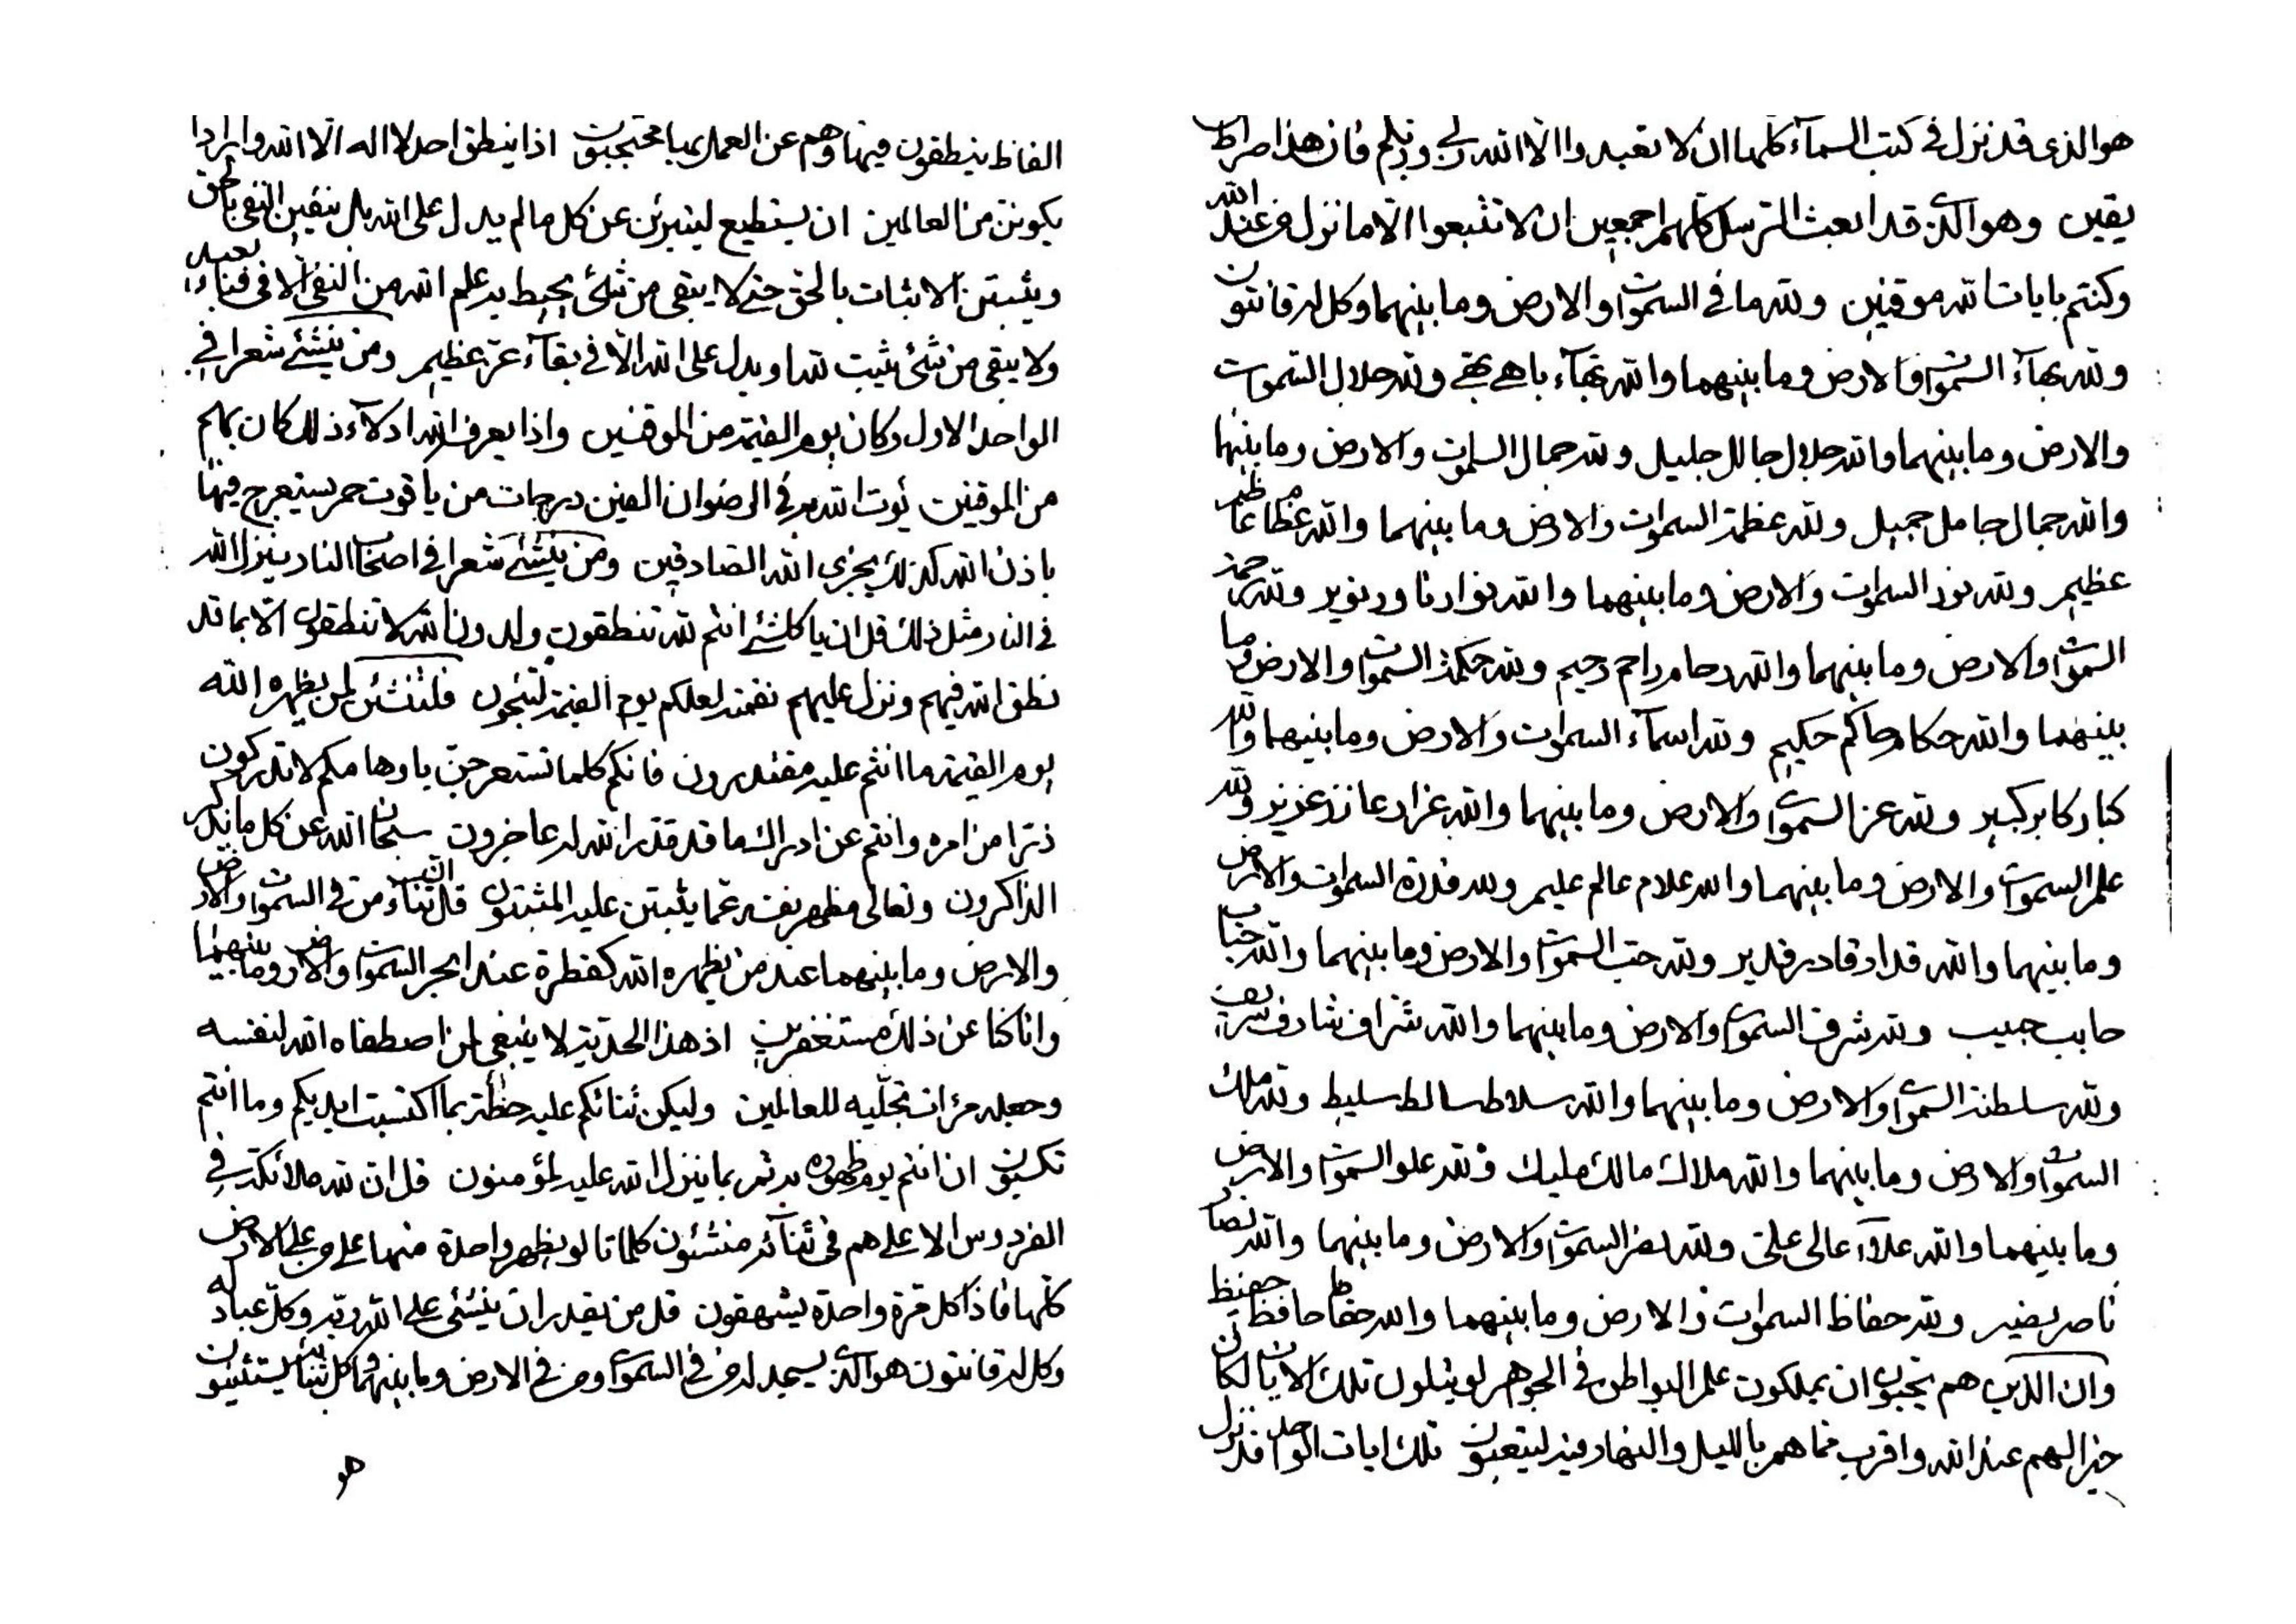 هو الذی قد نزل فی کتب السمآء کلها ان لا تعبدوا الا الله ربی وربکم فان هذا صراط
یقین وهو الذی قد ابعث الرسل کلهم اجمعین ان لا تتبعوا الا ما نزل من عند الله
وکنتم بایات الله موقنین ولله ما فی السموات والارض وما بینهما وکل له قانتون
ولله بهآء السموات والارض وما بینهما والله بهآء باهی بهی ولله جلال السموات
والارض وما بینهما والله جلال جالل جلیل ولله جمال السموات والارض وما بینهما
والله جمال جامل جمیل ولله عظمة السموات والارض وما بینهما والله عظام عاظم
عظیم ولله نور السموات والارض وما بینهما والله نوار ناور نویر ولله رحمة
السموات والارض وما بینهما والله رحام راحم رحیم ولله حکمة السموات والارض وما
بینهما والله حکام حاکم حکیم ولله اسمآء السموات والارض وما بینهما والله
کبار کابر کبیر ولله عز السموات والارض وما بینهما والله عزاز عازز عزیز ولله
علم السموات والارض وما بینهما والله علام عالم علیم ولله قدرة السموات والارض
وما بینهما والله قدار قادر قدیر ولله حب السموات والارض وما بینهما والله حباب
حابب حبیب ولله شرف السموات والارض وما بینهما والله شراف شارف شریف
ولله سلطنة السموات والارض وما بینهما والله سلاط سالط سلیط ولله ملک
السموات والارض وما بینهما والله ملاک مالک ملیک ولله علو السموات والارض
وما بینهما والله علاء عالی علی ولله نصر السموات والارض وما بینهما والله نصار
ناصر نصیر ولله حفاظ السموات والارض وما بینهما والله حفاظ حافظ حفیظ
وان الذین هم یحبون ان یملکون علم البواطن فی الجوهر لو یتلون تلک الایات لکان
خیرا لهم عند الله واقرب مما هم باللیل والنهار فیه لیتعبون تلک ایات الواحد قد نزل
الفاظ ینطقون فیها وهم عن العمل بها محتجبون اذا ینطق احد لا اله الا الله وارادا
یکونن من العالمین ان یستطیع لیتبرئن عن کل ما لم یدل علی الله بل ینفین النفی بالحق
ویثبتن الاثبات بالحق حتی لا یبقی من شئ یحیط به علم الله من النفی الا فی فناء بعید
ولا یبقی من شئ یثبت لله او یدل علی الله الا فی بقآء عز عظیم ومن ینشئ شعرا فی
الواحد الاول وکان یوم القیمة من الموقنین واذا یعرف الله ادلآء ذلک کان بهم
من الموقنین یؤت الله به فی الرضوان الفین درجات من یاقوت حمر یستعرج فیها
باذن الله کذلک یجزی الله الصادقین ومن ینشئ شعرا فی اصحاب النار ینزل الله
فی النار مثل ذلک قل ان یا کلشئ انتم لله تنطقون ولدون الله لا تنطقون الا بما قد
نطق الله فیهم ونزل علیهم نقمة لعلکم یوم القیمة لتنجون فلتنشئن لمن یظهره الله
یوم القیمة ما انتم علیه مقتدرون فانکم کلما تستعرجن باوهامکم لا تدرکون
ذرا من امره وانتم عن ادراک ما قد قدر الله له عاجزون سبحان الله عن کل ما یذکر
الذاکرون وتعالی مظهر نفسه عما یثبتن علیه المثبتون قل ان ثناء من فی السموات والارض
والارض وما بینهما عند من یظهره الله کقطرة عند ابحر السموات والارض وما بینهما
وانا کنا عن ذلک مستغفرین اذ هذا الحد لا ینبغی لمن اصطفاه الله لنفسه
وجعله مرءات تجلیه للعالمین ولیکن ثنائکم علیه حظ بما اکتسبت ایدیکم وما انتم
تکسبون ان انتم یوم ظهوره به ثم بما ینزل الله علیه لمؤمنون قل ان لله ملائکة فی
الفردوس الاعلی هم فی ثنآئه منشئون کلمات لو یظهر واحدة منها علی من علی الارض
کلها فاذا کل مرة واحدة یشهقون قل من یقدر ان ینشئ علی الله ربه وکل عباد له
وکل له قانتون هو الذی یسجد له من فی السموات ومن فی الارض وما بینهما وکل بثنائه یستثنیون
هو